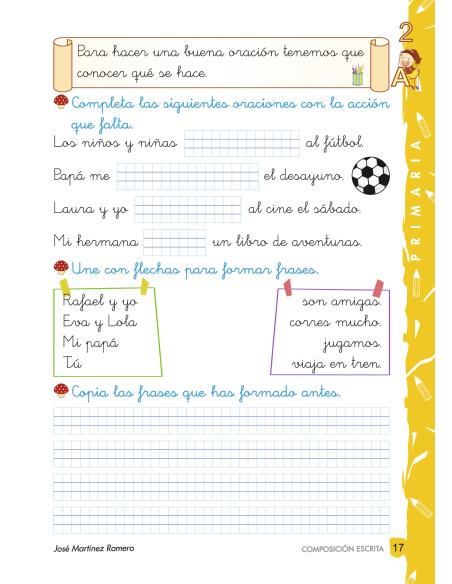 Para hacer una buena oración tenemos que
conocer qué se hace.
2
A
PRIMARIA
Completa las siguientes oraciones con la acción
que falta.
Los niños y niñas al fútbol.
Papá me el desayuno.
Laura y yo al cine el sábado.
Mi hermana un libro de aventuras.
Une con flechas para formar frases.
Rafael y yo
Eva y Lola
Mi papá
Tú
son amigas.
corres mucho.
jugamos.
viaja en tren.
Copia las frases que has formado antes.
José Martínez Romero
COMPOSICIÓN ESCRITA
17